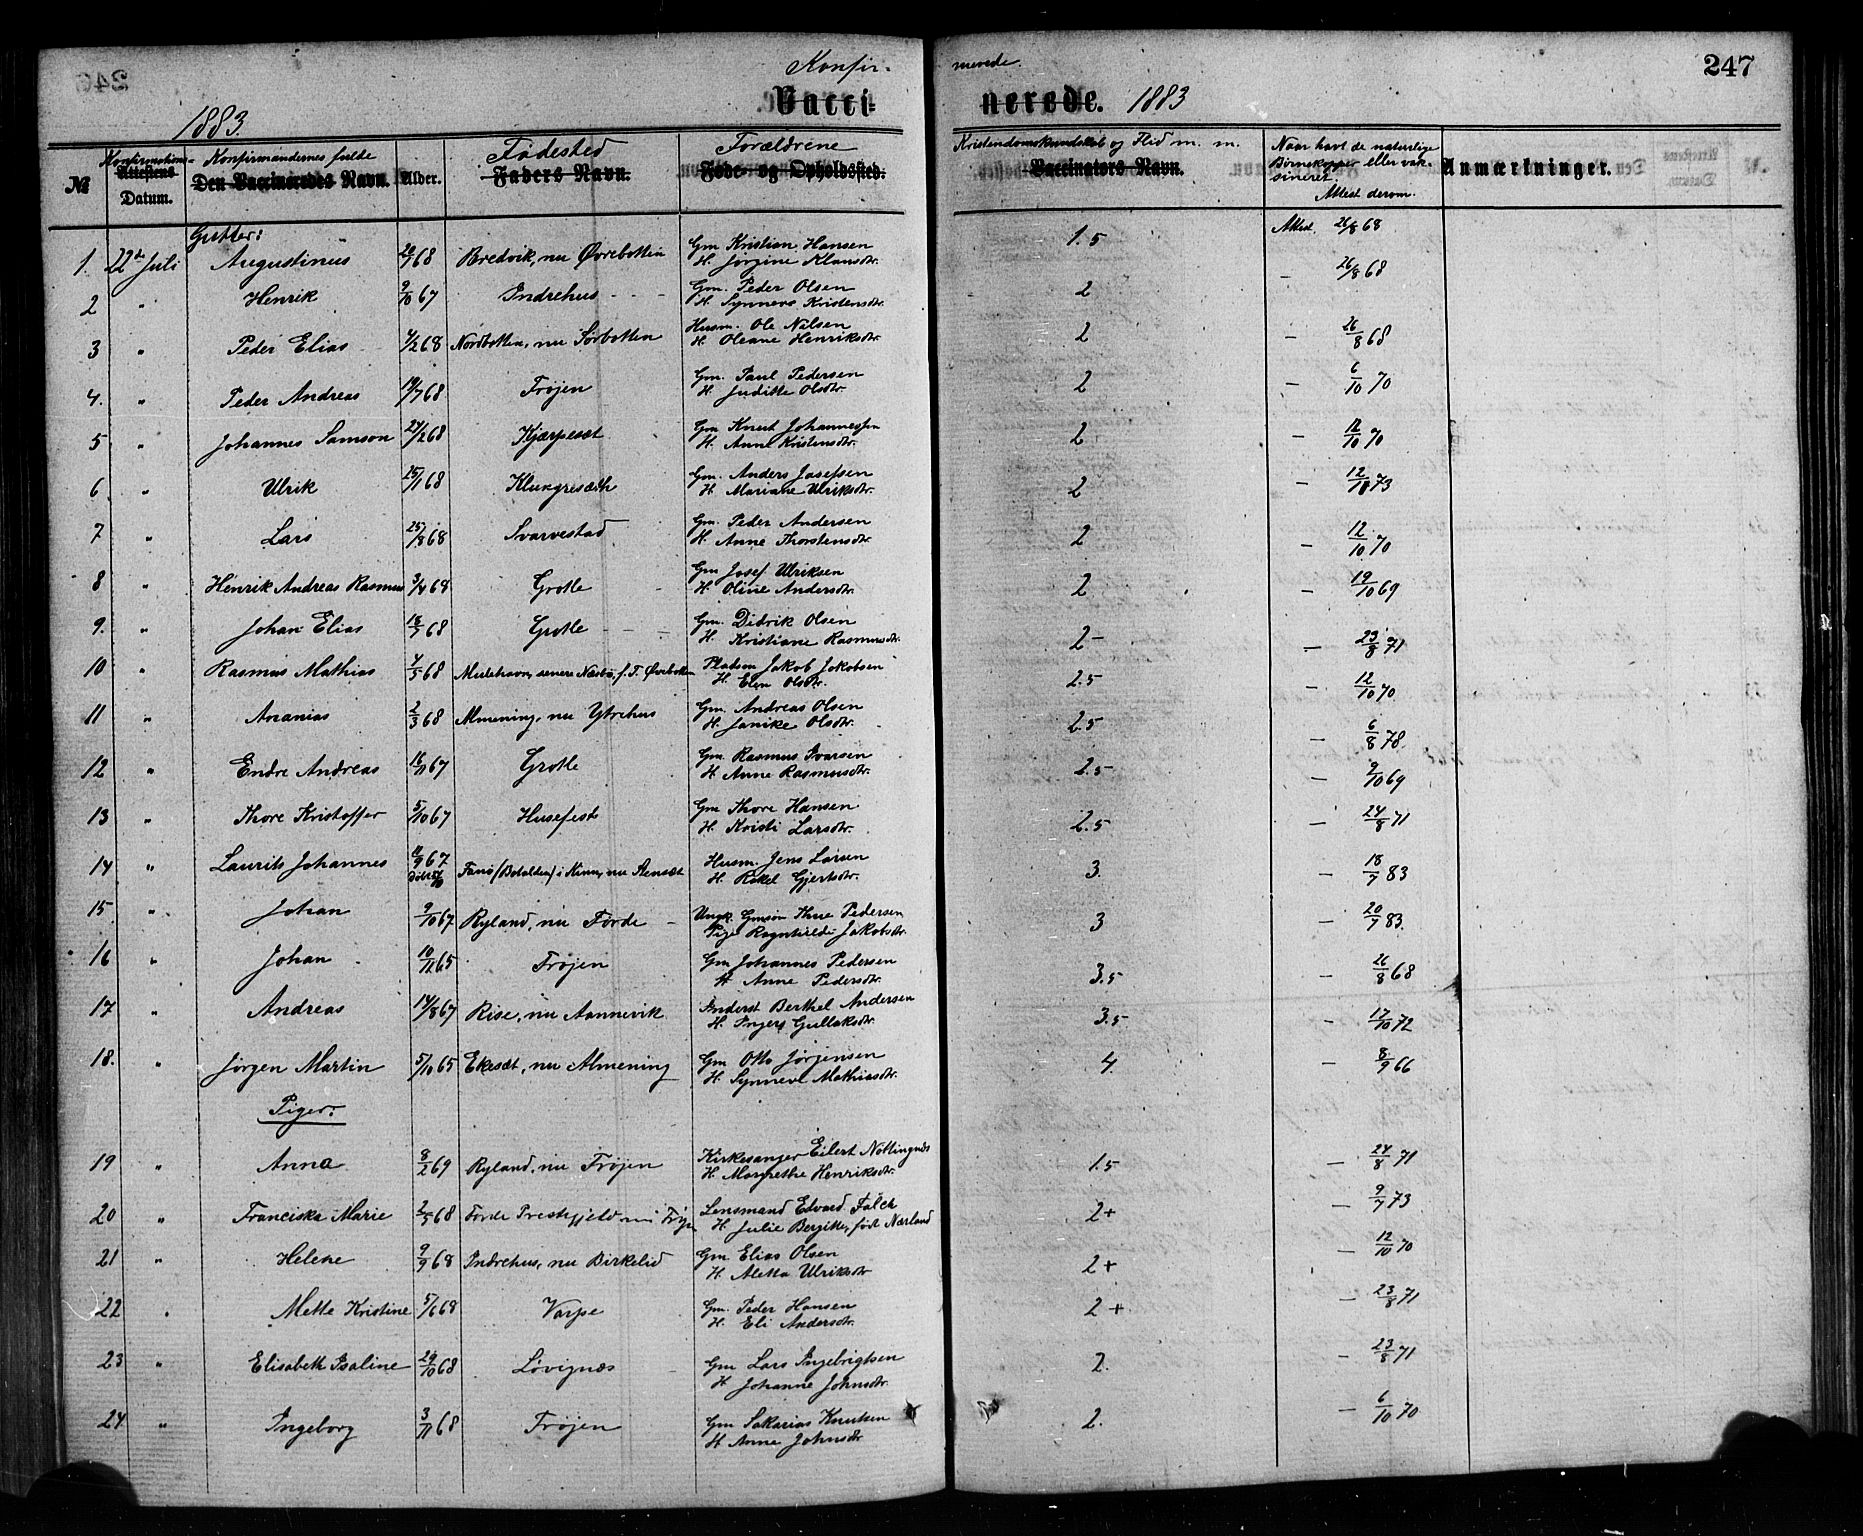 Konfir- merede. 247
1883. Vacci- nerede. 1883
№ Konfirmations- Attestens Datum. Konfirmandernes fulde Den Vaccineredes Navn. Alder. Fødested Faders Navn. Forældrene Føde- og Opholdssted. Kristendomskundskab og Flid m. m. Vaccinators Navn. Naar havt de naturlige Børnekopper eller vaksineret. Attest derom. Anmærkninger.
Gutter:
1. 22de Juli Augustinus 68 Bredvik, nu Øvrebotten Gm Kristian Hansen H. Jørgine Klausdtr. 1.5 Attest 26/8 68
2 " Henrik 9/10 67 Indrehus Gm. Peder Olsen H. Synneve Kristensdtr. 2 — 26/8 68
3 " Peder Elias 4/2 68 Nordbotten, nu Sørbotten Husm. Ole Nilsen H. Oleane Henriksdtr. 2 — 26/8 68
4. " Peder Andreas 19/7 68 Frøjen Gm. Paul Pedersen H. Juditte Olsdtr. 2 — 6/10 70
5 " Johannes Samson 24/2 68 Kjærpesæt Gm Knut Johannessen H. Anne Kristensdtr. 2 — 12/10 70
6 " Ulrik 25/1 68 Gm. Anders Josefsen H. Mariane Ulriksdtr. 2 — 12/11 73
7 " Lars 25/8 68 Svarvestad Gm. Peder Andersen H. Anne Thorstensdtr. 2 — 12/10 70
8 " Henrik Andreas Rasmus 3/4 68 Grotle Gm Josef Ulriksen H. Oline Andersdtr. 2 — 19/10 69
9. " Johan Elias 18/7 68 Grotle Gm. Didrik Olsen H. Kristiane Rasmusdtr. 2- — 23/8 71
10 " Rasmus Mathias 4/5 68 Pladsm Jakob Jakobsen H. Elen Olsdtr. 2.5 — 12/10 70
11 " Ananias 2/3 68 Almening, nu Ytrehus Gm. Andreas Olsen H. Janike Olsdtr. 2.5 — 6/8 78.
12 " Endre Andreas 16/11 67 Grotle Gm Rasmus Ivarsen H Anne Rasmusdtr. 2.5 — 9/10 69
13 " Thore Kristoffer 5/10 67 Husefest Gm Thore Hansen H. Kristi Larsdtr. 2.5 — 24/8 71
14 " Laurits Johannes 11/9 67 Fanø (Batalden) i Kinn, nu Husm. Jens Larsen H. Rakel Gjertsdtr. 3. — 18/7 83
15 " Johan 9/10 67 Ryland, nu Førde Ungk. Gmsøn Thue Pedersen Pige Ragnhilde Jakobsdtr. 3 — 20/7 83.
16 " Johan 10/11 65 Frøjen Gm Johannes Pedersen H Anne Pedersdtr. 3.5 — 26/8 68
17 " Andreas 14/8 67 Rise, nu Aannevik Inderst Berthel Andersen H. Ingers Gullaksdtr. 3.5 — 17/10 72
18. " Jørgen Martin 5/10 65 Ekesæt, nu Almening Gm Otto Jørgensen H. Synneve Mathiasdtr. 4. — 8/9 66
Piger:
19 " Anna 8/2 69 Ryland, nu Frøjen Kirkesanger Eilert Nøttingnes H. Margrethe Henriksdtr. 1.5 — 24/8 71
20 " Franciska Marie 2/5 68 Førde Prestegjeld nu Frøjen Lensmand Edvard Falck H. Julie Bergitte, født Nærland 2+ — 9/7 73
21 " Helene 9/9 68 Indrehus, nu Birkelid Gm Elias Olsen H. Aletta Ulriksdtr 2+ — 12/10 70
22 " Mette Kristine 5/6 68 Varpe Gm. Peder Hansen H. Eli Andersdtr. 2+ — 23/8 71
23 " Elisabeth Isaline 29/10 68 Løvignæs Gm Lars Ingebrigtsen H Johanne Johnsdtr. 2. — 23/8 71
24 " Ingeborg 3/11 68 Frøjen Gm Sakarias Knutsen H Anne Johnsdtr 2. — 6/10 70